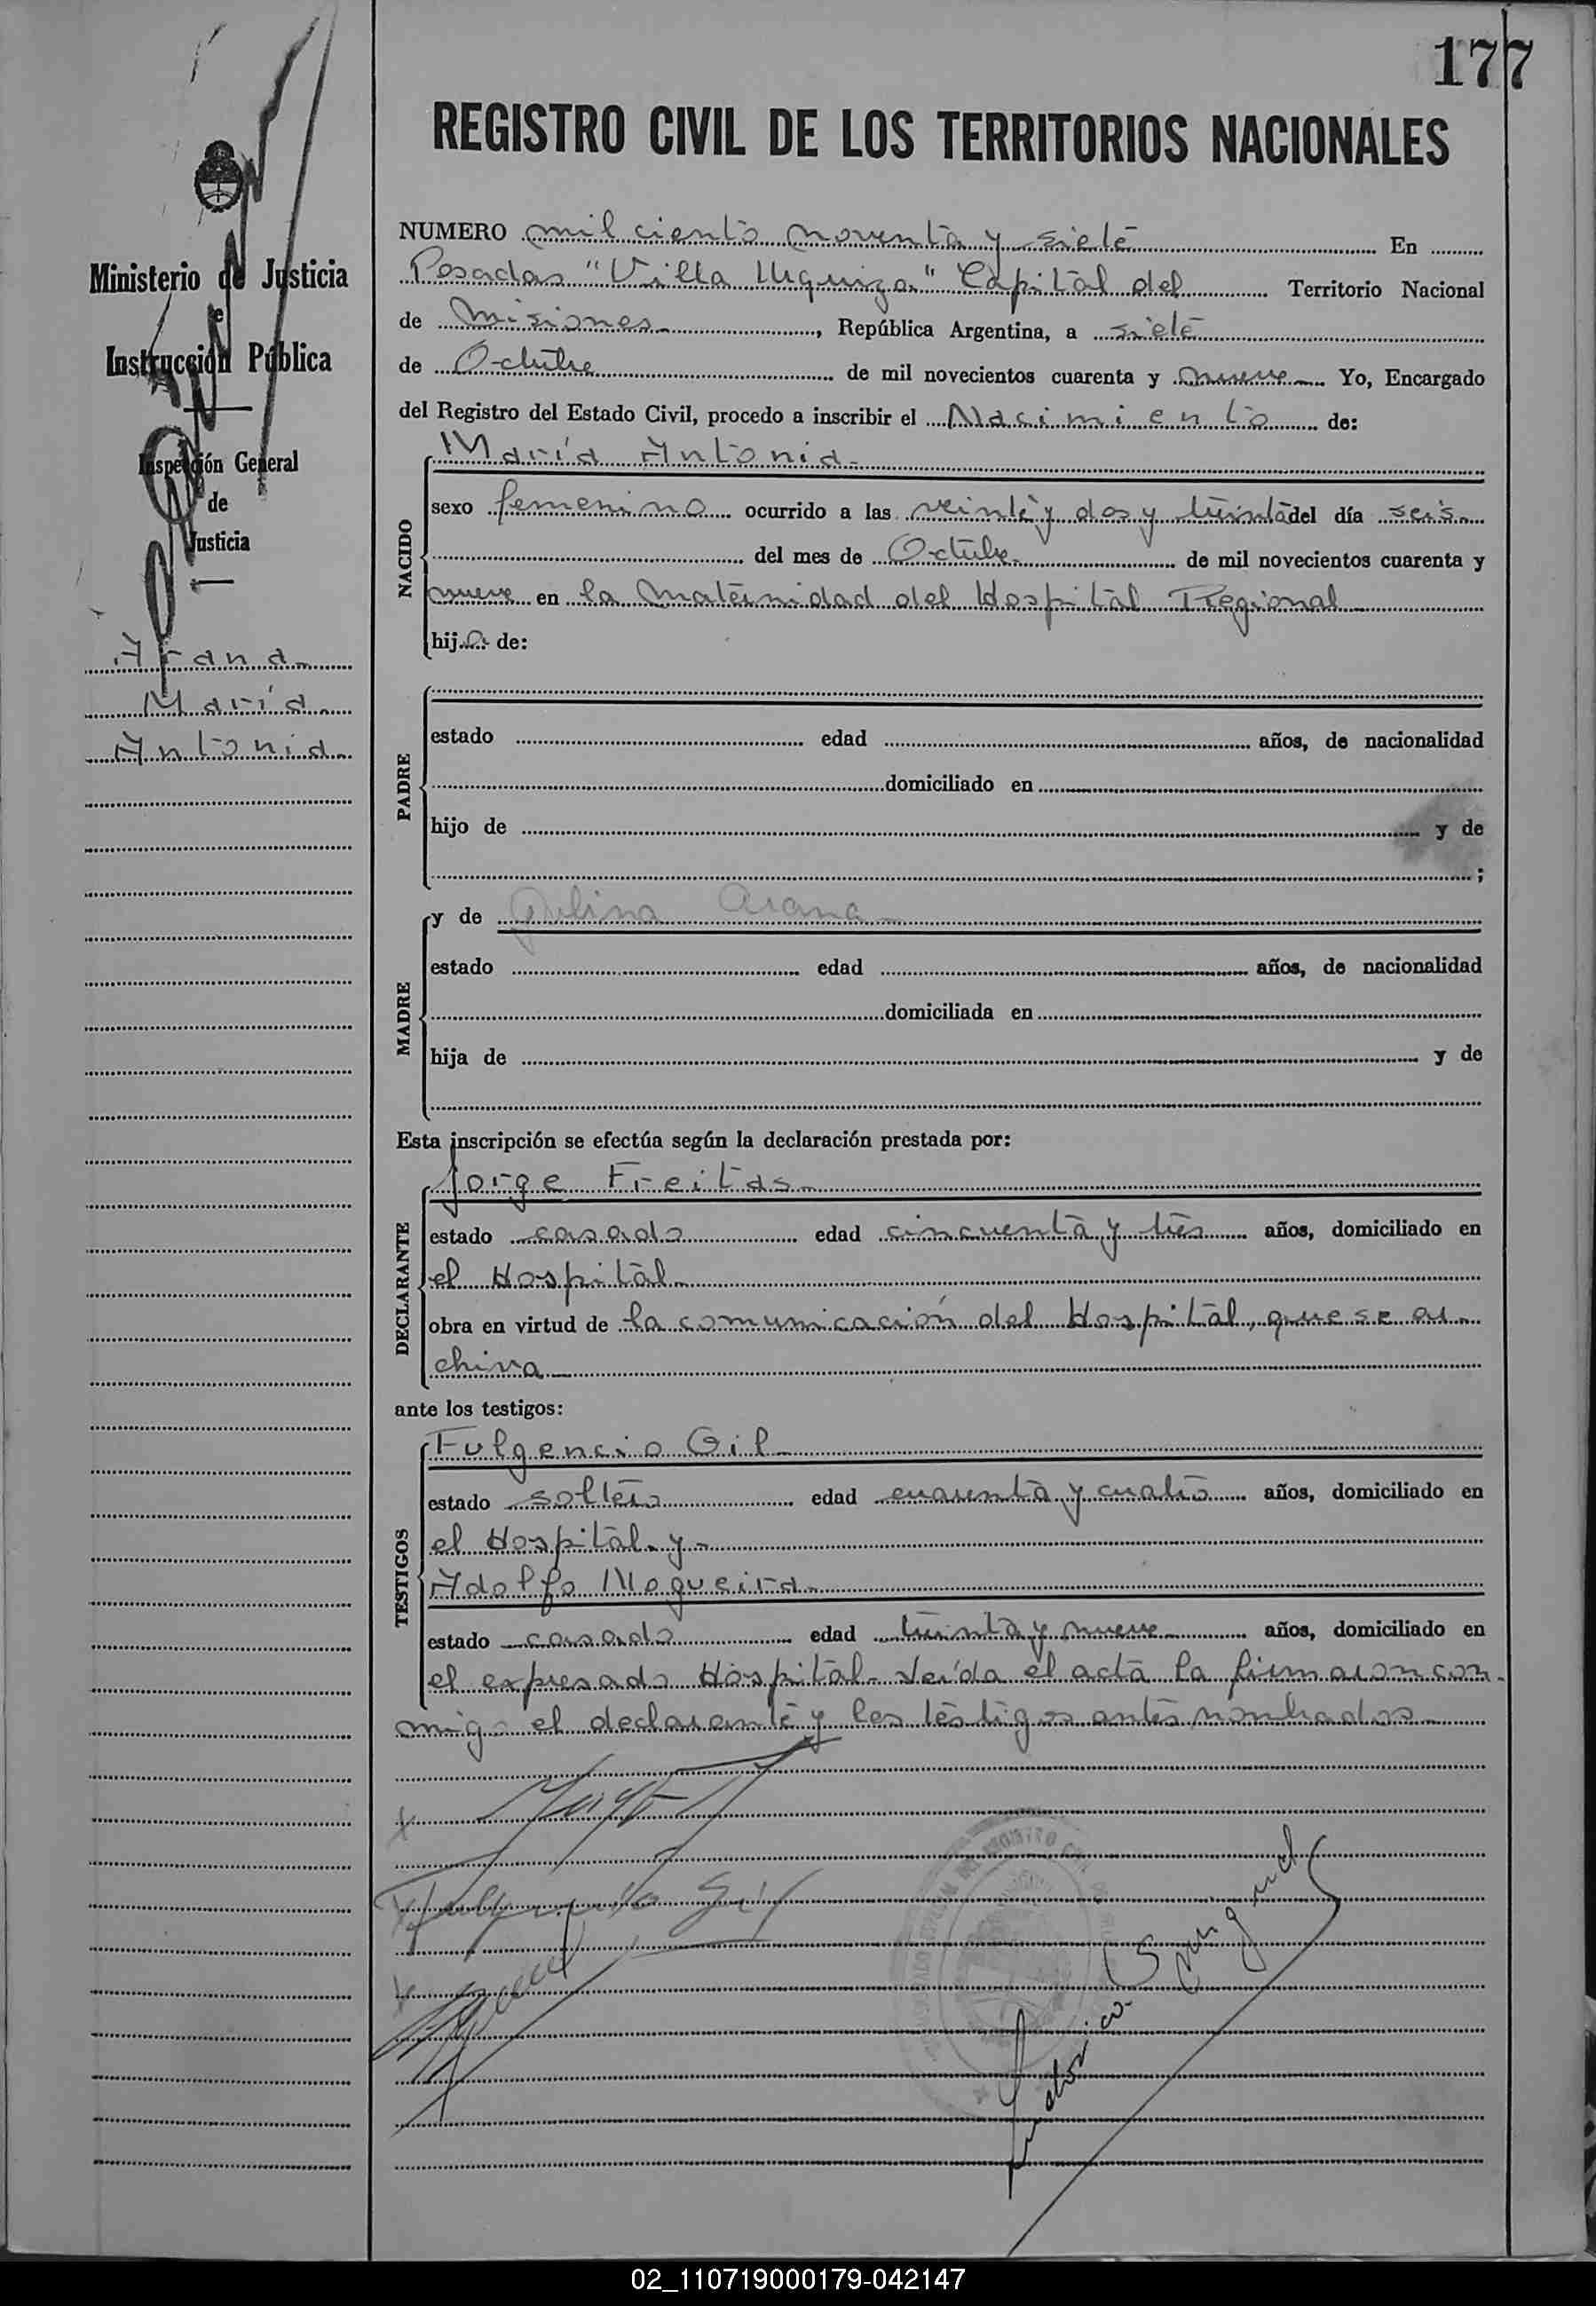 177
REGISTRO CIVIL DE LOS TERRITORIOS NACIONALES
Ministerio de Justicia
e
Instrucción Pública
Inspección General
de
Justicia
Arana
María
Antonia
NUMERO mil ciento noventa y siete En
Posadas "Villa Urquiza" Capital del Territorio Nacional
de Misiones, República Argentina, a siete
de Octubre de mil novecientos cuarenta y nueve Yo, Encargado
del Registro del Estado Civil, procedo a inscribir el Nacimiento de:
María Antonia
NACIDO
sexo femenino ocurrido a las veinte y dos y treinta del día seis
del mes de Octubre de mil novecientos cuarenta y
nueve en la Maternidad del Hospital Regional
hija de:
PADRE
estado edad años, de nacionalidad
domiciliado en
hijo de y de
;
MADRE
y de Arana
estado edad años, de nacionalidad
domiciliada en
hija de y de
Esta inscripción se efectúa según la declaración prestada por:
Jorge Freitas
DECLARANTE
estado casado edad cincuenta y tres años, domiciliado en
el Hospital
obra en virtud de la comunicación del Hospital, que se ar-
chiva
ante los testigos:
Fulgencio Gil
TESTIGOS
estado soltero edad cuarenta y cuatro años, domiciliado en
el Hospital y
Adolfo Nogueira
estado casado edad treinta y nueve años, domiciliado en
el expresado Hospital. Leída el acta la firmaron con-
migo el declarante y los testigos antes nombrados
Fulgencio Gil
02_110719000179-042147